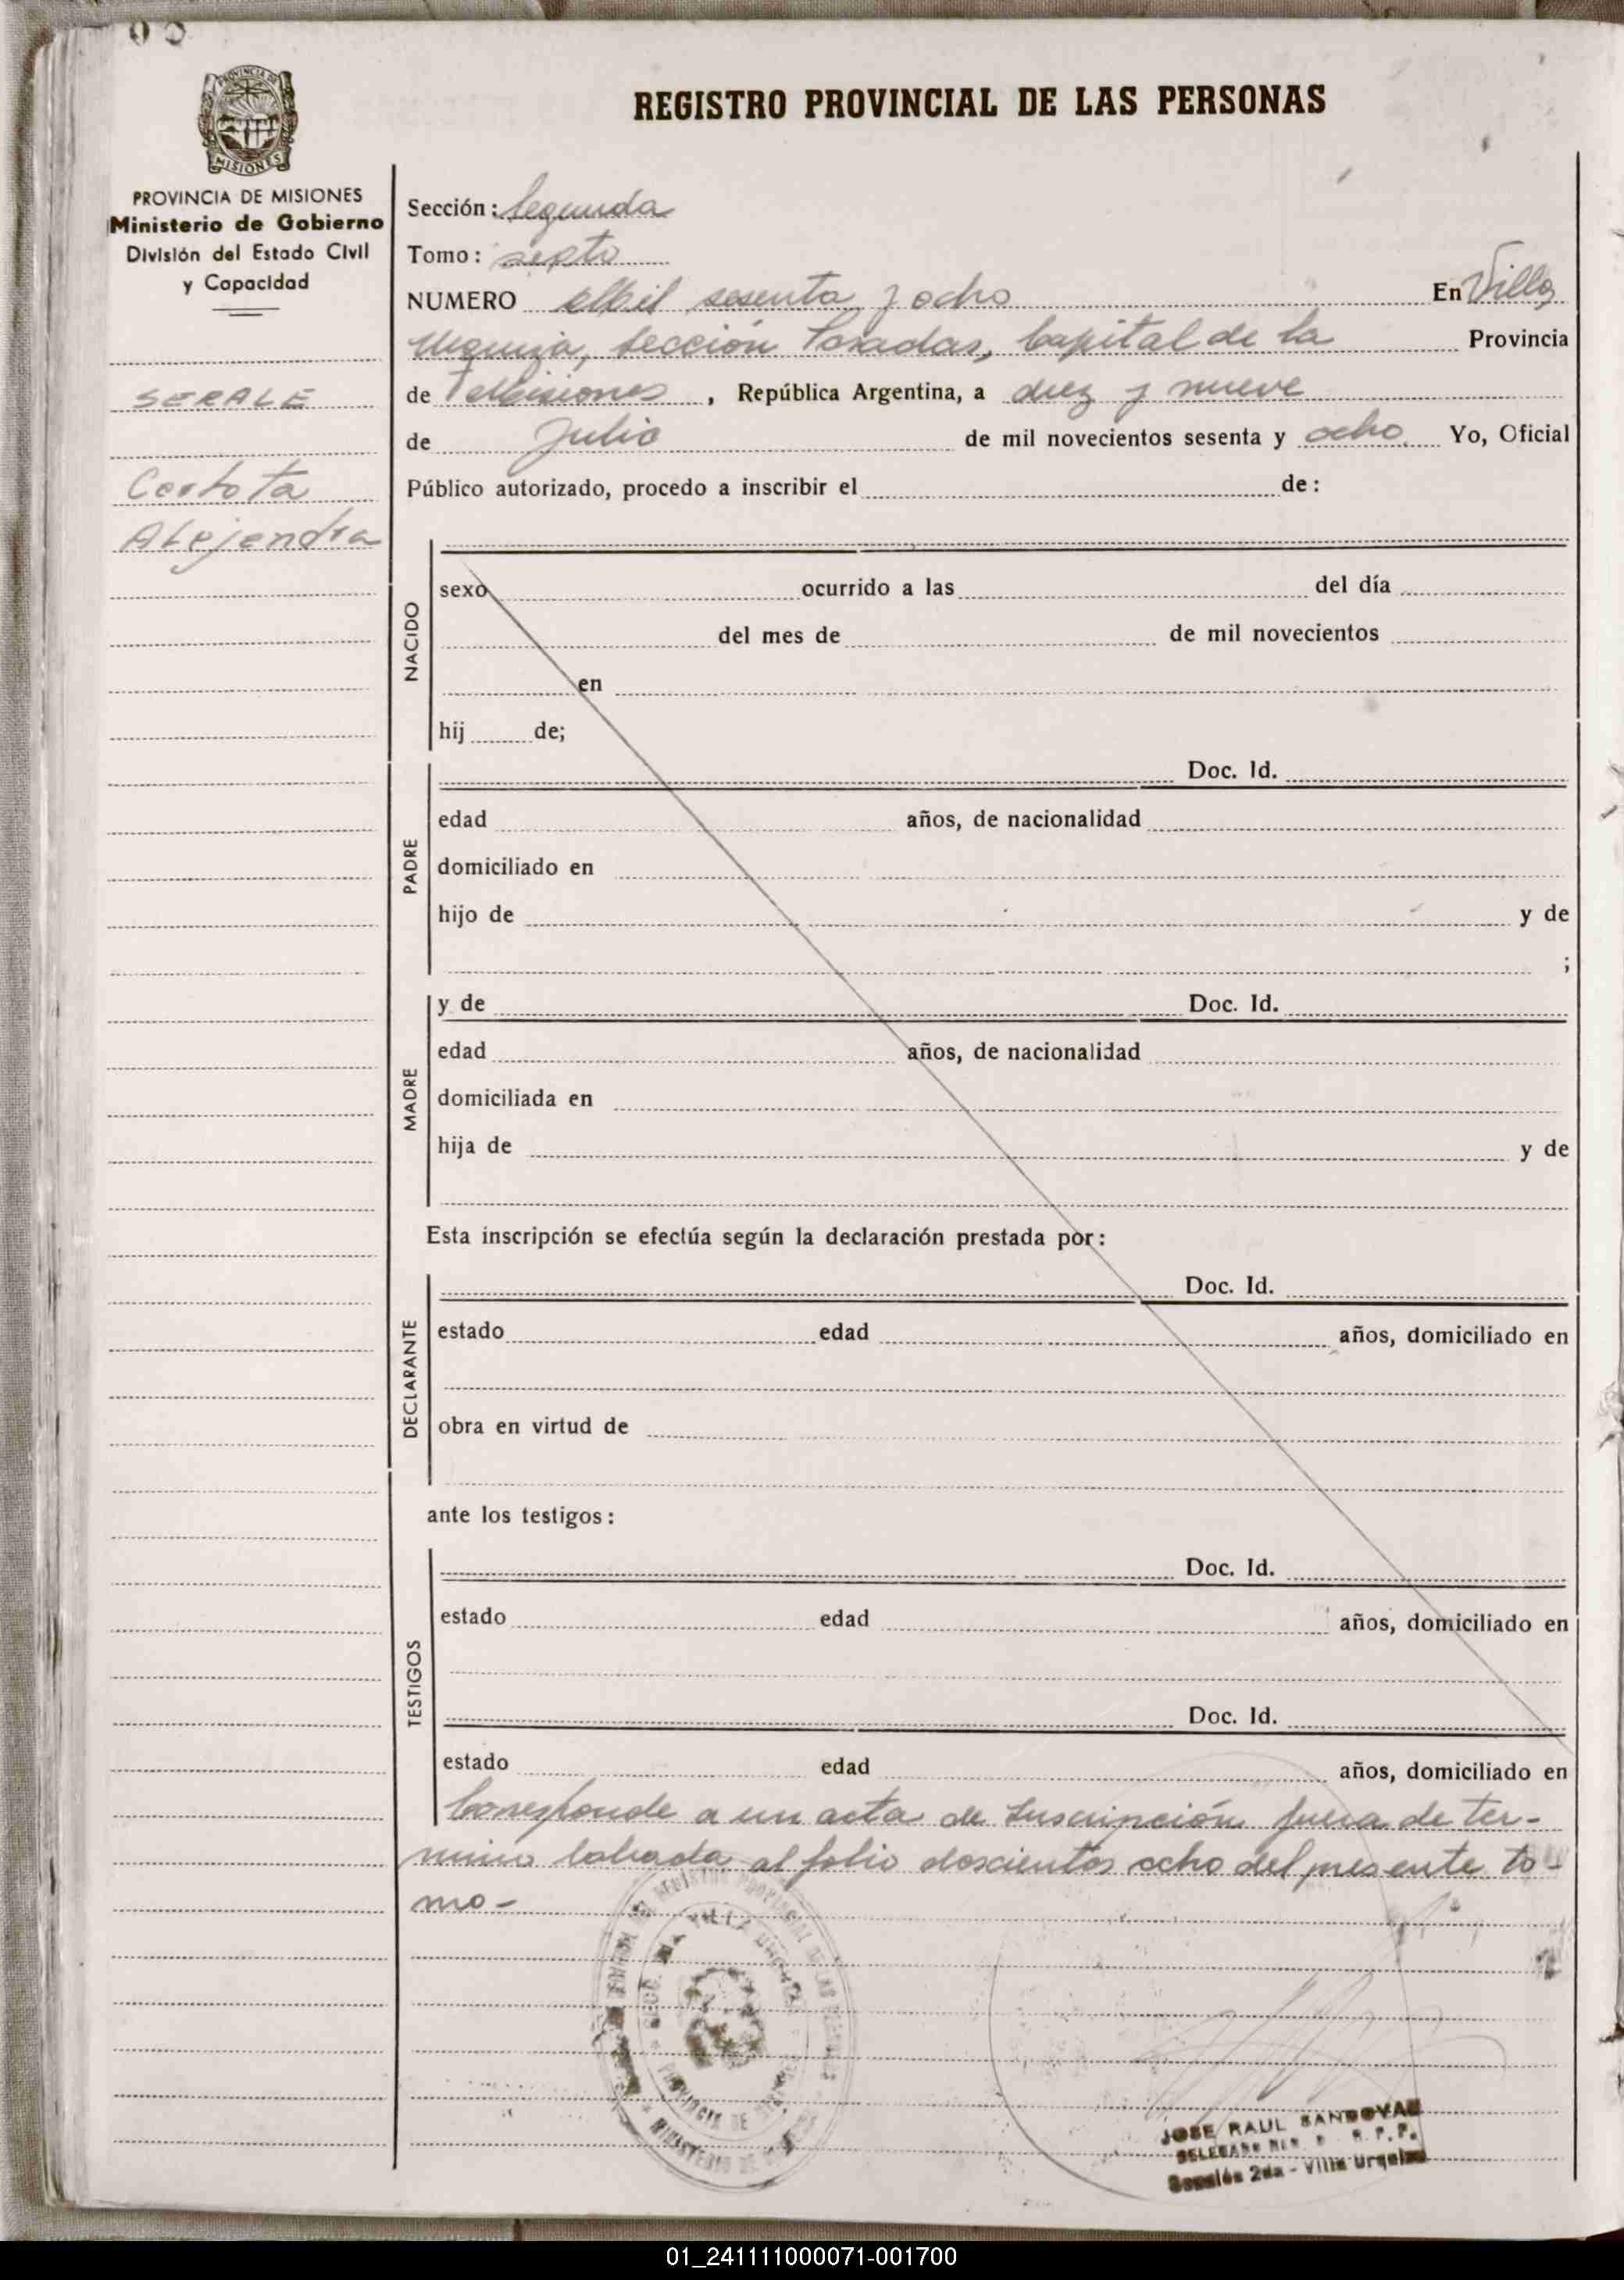 REGISTRO PROVINCIAL DE LAS PERSONAS
PROVINCIA DE
MISIONES
PROVINCIA DE MISIONES
Ministerio de Gobierno
División del Estado Civil
y Capacidad
SERALE
Carlota
Alejandra
Sección: Segunda
Tomo: septo
NUMERO Mil sesenta y ocho En Villa
Urquiza, Sección Posadas, Capital de la Provincia
de Misiones, República Argentina, a diez y nueve
de Julio de mil novecientos sesenta y ocho Yo, Oficial
Público autorizado, procedo a inscribir el de:
NACIDO
sexo ocurrido a las del día
del mes de de mil novecientos
en
hij de;
PADRE
Doc. Id.
edad años, de nacionalidad
domiciliado en
hijo de y de
;
MADRE
y de Doc. Id.
edad años, de nacionalidad
domiciliada en
hija de y de
Esta inscripción se efectúa según la declaración prestada por:
DECLARANTE
Doc. Id.
estado edad años, domiciliado en
obra en virtud de
ante los testigos:
TESTIGOS
Doc. Id.
estado edad años, domiciliado en
Doc. Id.
estado edad años, domiciliado en
Corresponde a un acta de Inscripción fuera de ter-
mino labrada al folio doscientos ocho del presente to-
mo-
REGISTRO PROVINCIAL DE LAS PERSONAS
VILLA URQUIZA
PROVINCIA DE
MINISTERIO DE
JOSE RAUL SANDOVAL
DELEGADO R. P. P.
Sección 2da - Villa Urquiza
01_241111000071-001700